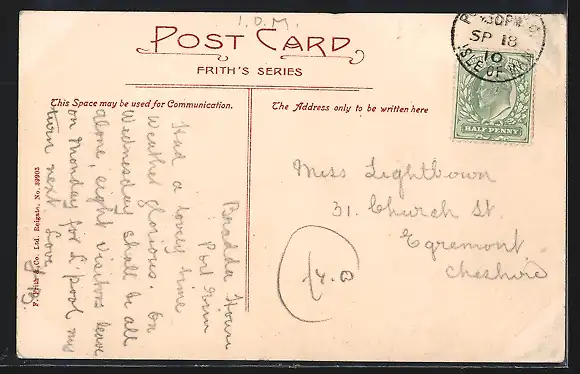 I.O.M.
POST CARD
FRITH'S SERIES
This Space may be used for Communication.
The Address only to be written here
30PM
SP 18
10
ISLE OF MAN
HALF PENNY
Bradda House
Port Erin
Had a lovely time
Weather glorious. On
Wednesday shall be all
alone, eight visitors leave
on Monday for L'pool my
turn next Love
F. Frith & Co. Ltd. Reigate. No. 39903
Miss Lightbown
31. Church St.
Egremont
Cheshire